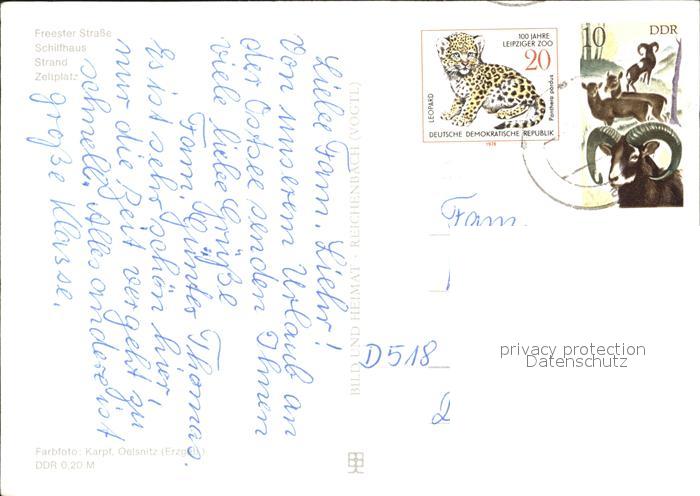 Freester Straße
Schilfhaus
Strand
Zeltplatz
Liebe Fam. Liehr!
Von unserem Urlaub an
der Ostsee senden Ihnen
viele liebe Grüße
Fam. Günter Thomas.
Es ist sehr schön hier,
nur die Zeit vergeht zu
schnell. Alles andere ist
große Klasse.
Farbfoto: Karpf, Oelsnitz (Erzgeb.)
DDR 0,20 M
BILD UND HEIMAT · REICHENBACH (VOGTL)
100 JAHRE
LEIPZIGER ZOO
20
LEOPARD
Panthera pardus
DEUTSCHE DEMOKRATISCHE REPUBLIK
1978
10
DDR
Fam.
D518
privacy protection
Datenschutz